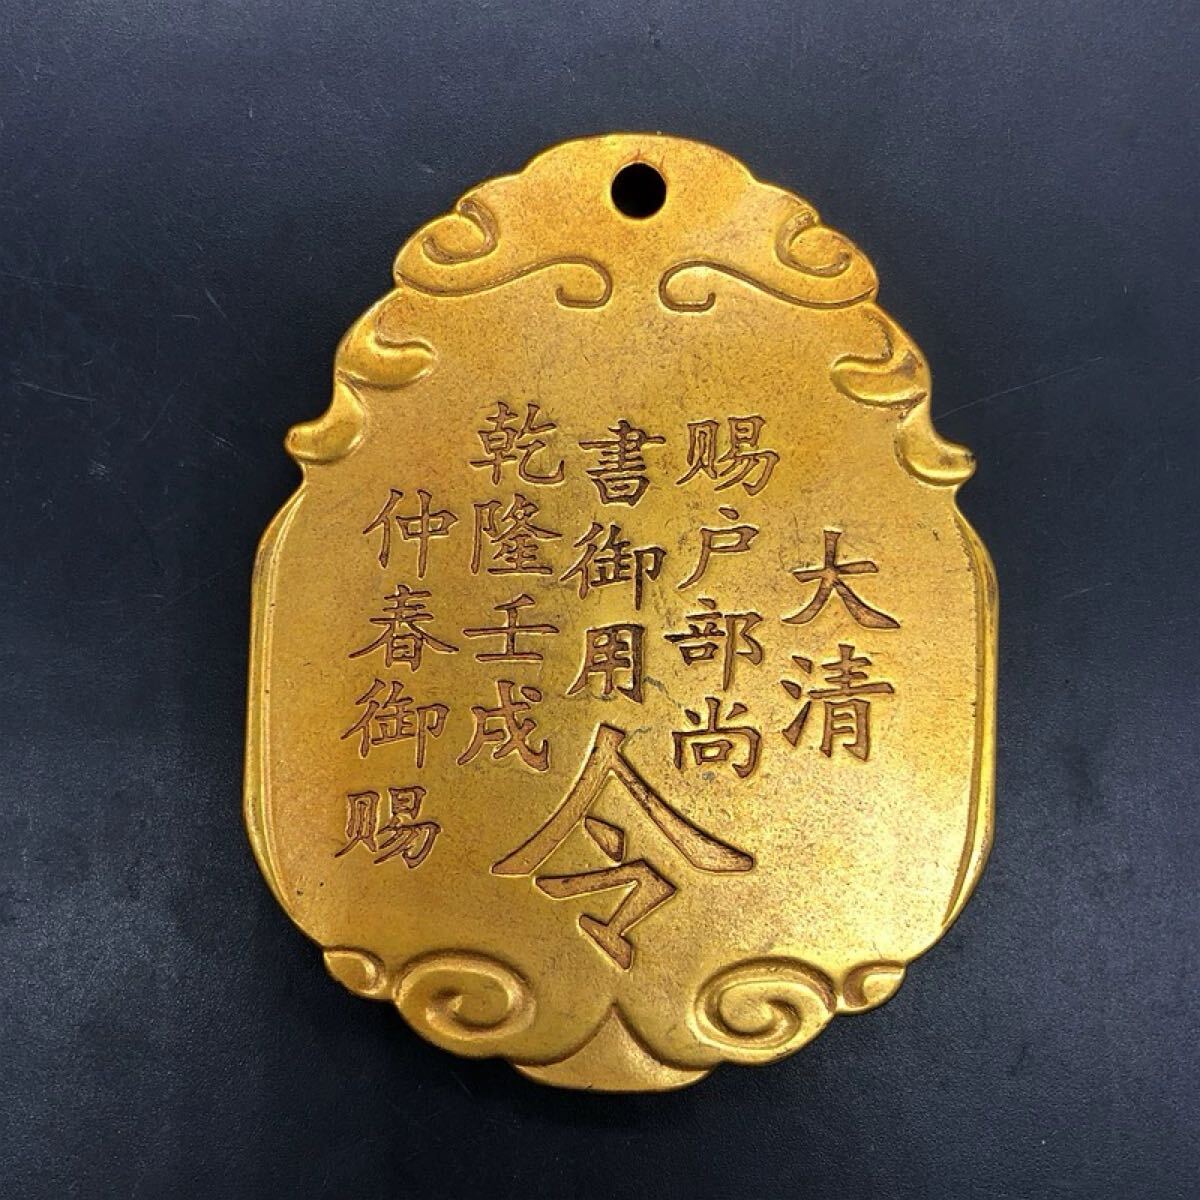 大清
赐户部尚
書御用令
乾隆壬戌
仲春御赐